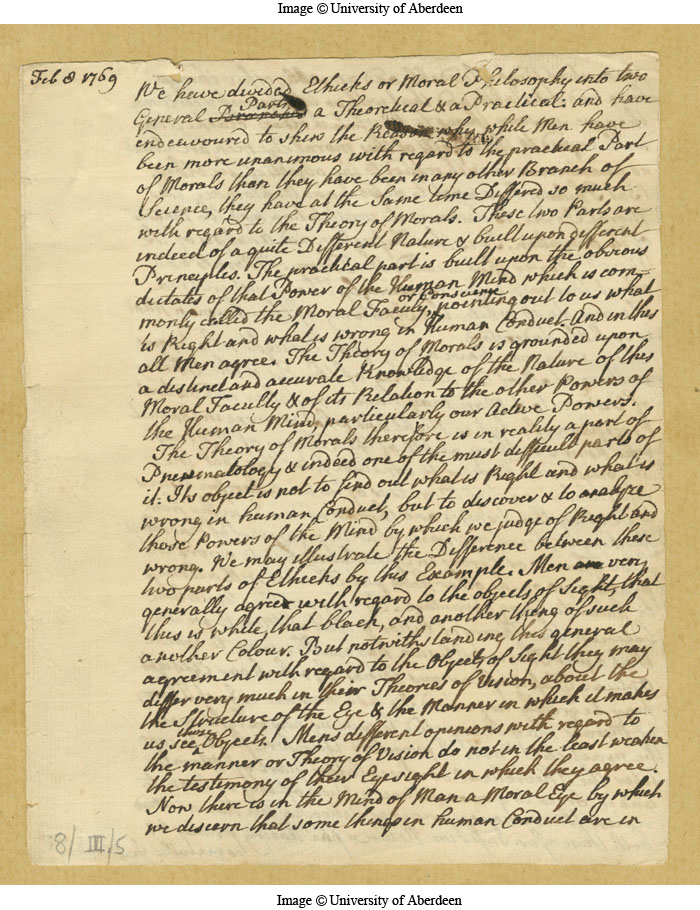 Image © University of Aberdeen
Feb 8 1769
We have divided Ethicks or Moral Philosophy into two
General Parts a Theoretical & a Practical: and have
endeavoured to shew the Reason why, while Men have
been more unanimous with regard to the practical Part
of Morals than they have been in any other Branch of
Science, they have at the Same time Differd so much
with regard to the Theory of Morals. These two Parts are
indeed of a quite Different Nature & built upon different
Principles. The practical part is built upon the obvious
dictates of that Power of the Human Mind which is com-
monly called the Moral Faculty or Conscience, pointing out to us what
is Right and what is wrong in Human Conduct. And in this
all Men agree. The Theory of Morals is grounded upon
a distinct and accurate Knowledge of the Nature of this
Moral Faculty & of its Relation to the other Powers of
the Human Mind, particularly our Active Powers.
The Theory of Morals therefore is in reality a part of
Pneumatology & indeed one of the most difficult parts of
it. Its object is not to find out what is Right and what is
wrong in human Conduct, but to discover & to analyze
those Powers of the Mind by which we judge of Right and
wrong. We may illustrate the Difference between these
two parts of Ethicks by this Example. Men very
generally agree with regard to the objects of Sight, that
this is white, that black, and another thing of such
another Colour. But notwithstanding this general
agreement with regard to the Objects of Sight they may
differ very much in their Theories of Vision, about the
the Structure of the Eye & the Manner in which it makes
us see those Objects. Mens different opinions with regard to
the manner or Theory of Vision do not in the least weaken
the testimony of their Eyesight in which they agree.
Now there is in the Mind of Man a Moral Eye by which
we discern that some things in human Conduct are in
8/III/5
Image © University of Aberdeen